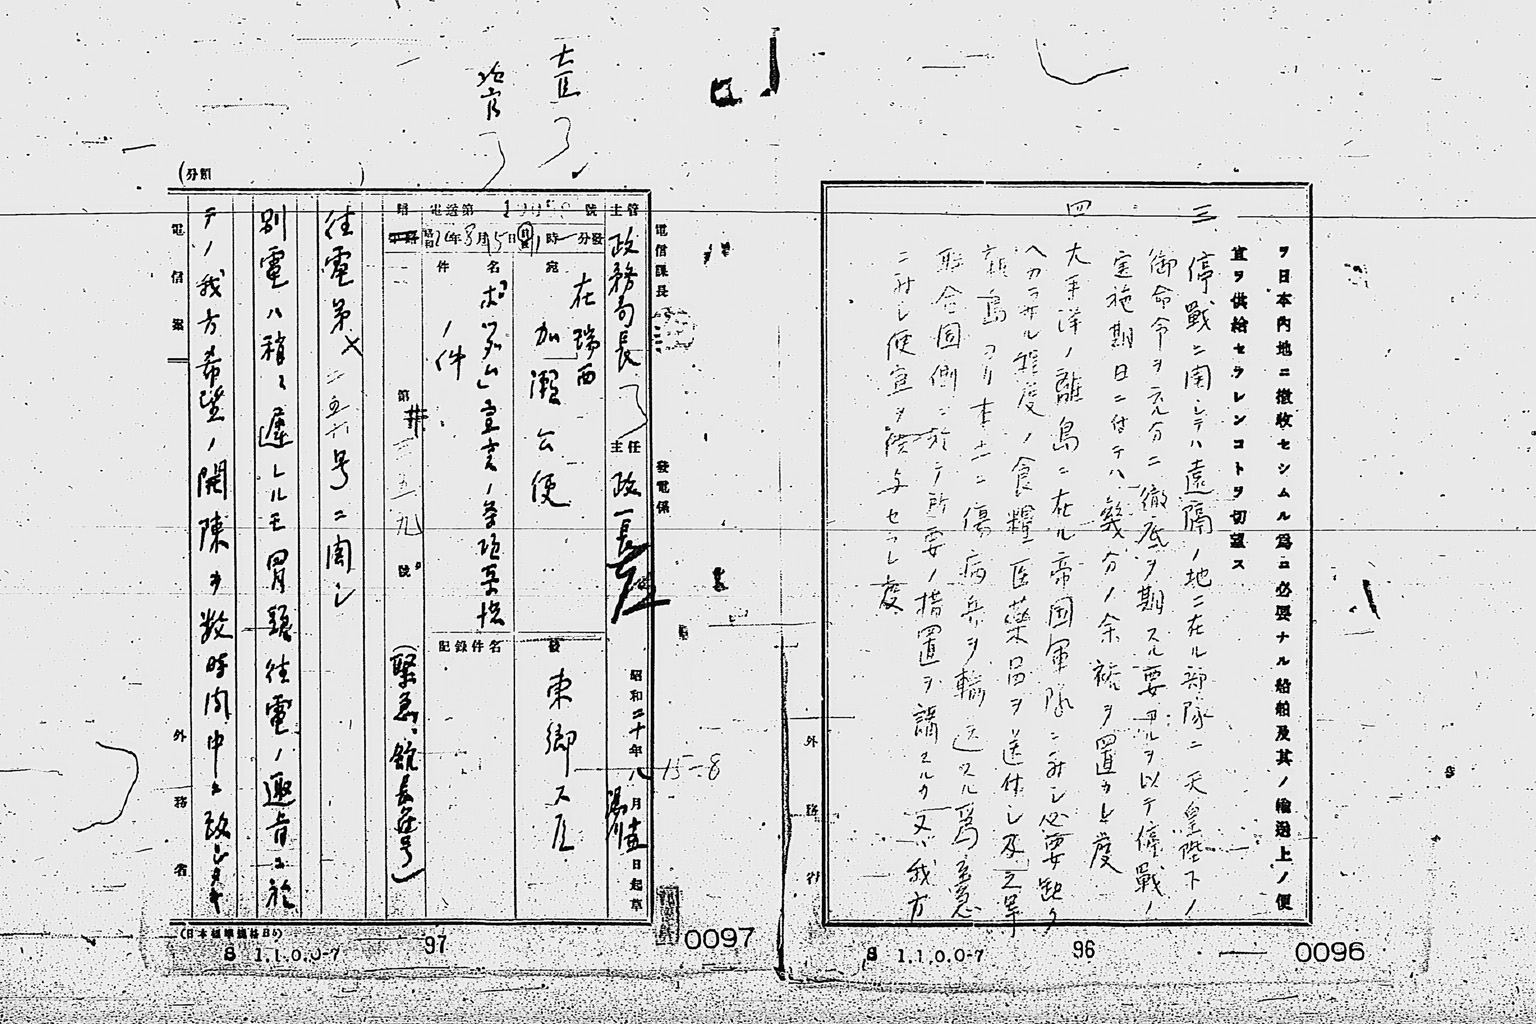 ヲ日本内地ニ撤收セシムル爲ニ必要ナル船舶及其ノ輸送上ノ便
宜ヲ供給セラレンコトヲ切望ス
三
停戰ニ関シテハ遠隔ノ地ニ在ル部隊ニ天皇陛下ノ
御命令ヲ充分ニ徹底ヲ期スル要アルヲ以テ停戰ノ
実施期日ニ付テハ幾分ノ余裕ヲ置カレ度
四
太平洋ノ離島ニ在ル帝国軍隊ニ対シ必要缺ク
ヘカラサル程度ノ食糧医薬品ヲ送付シ及之等
離島ヨリ本土ニ傷病兵ヲ輸送スル爲至急
聯合国側ニ於テ所要ノ措置ヲ講スルカ又ハ我方
ニ対シ便宜ヲ供与セラレ度
外務省
S 1.1.0.0-7
96
0096
(分類
電信課長
發電係
主管
政務局長
主任
政一長
昭和二十年八月 日起草
電送第 號
昭和20年8月15日 時 分發
宛
在瑞西
加瀬公使
發
東郷大臣
件名
「ポツダム」宣言ノ条項受諾
ノ件
記録件名
第 五九 號
(緊急、館長符号)
往電第 五六号ニ関シ
別電ハ稍々遅レルモ冒頭往電ノ趣旨ニ於
テノ我方希望ノ開陳ヲ数時間中ニ致シ
電信案
外務省
(日本標準規格B5)
S 1.1.0.0-7
97
0097
15-8